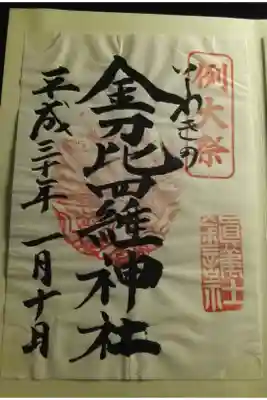 例大祭
いわきの
金刀比羅神社
平成三十年 一月十日